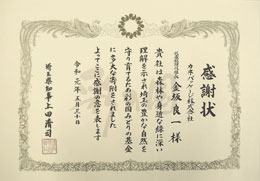 感謝状
カネパッケージ株式会社
代表取締役社長
金坂良一様
貴社は森林や身近な緑に深い
理解を示され埼玉の豊かな自然を
守り育てるため彩の国みどりの基金
に多大な寄附をされました
よってここに感謝の意を表します
令和元年五月三十日
埼玉県知事上田清司